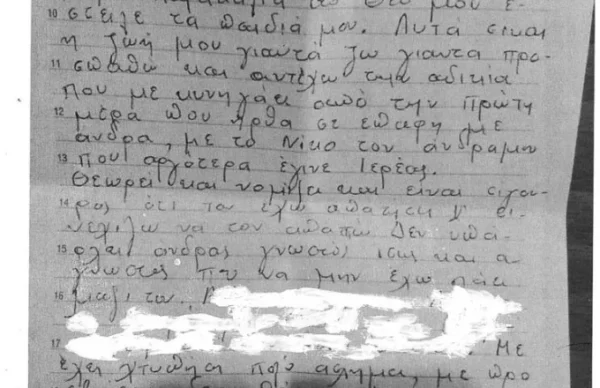 του Θεού μου έ-
10 στειλε τα παιδιά μου. Αυτά είναι
η ζωή μου γιαυτά ζω γιαυτα προ-
11 σπαθώ και αντέχω την αδικία
που με κυνηγάει από την πρώτη
12 μέρα που ήρθα σε επαφή με
άνδρα, με το Νίκο τον άνδραμου
13 που αργότερα έγινε Ιερέας.
Θεωρεί και νομίζει και είναι σιγου-
14 ρος ότι τον έχω απατήσει
νεχίζω να τον απατώ Δεν υπά-
15 ρχει άνδρας γνωστός ίσως και α
γνωστος που να μην έχω πάει
16 μαζί του.
17 Με
έχει χτυπήσει πολύ άσχημα, με προ